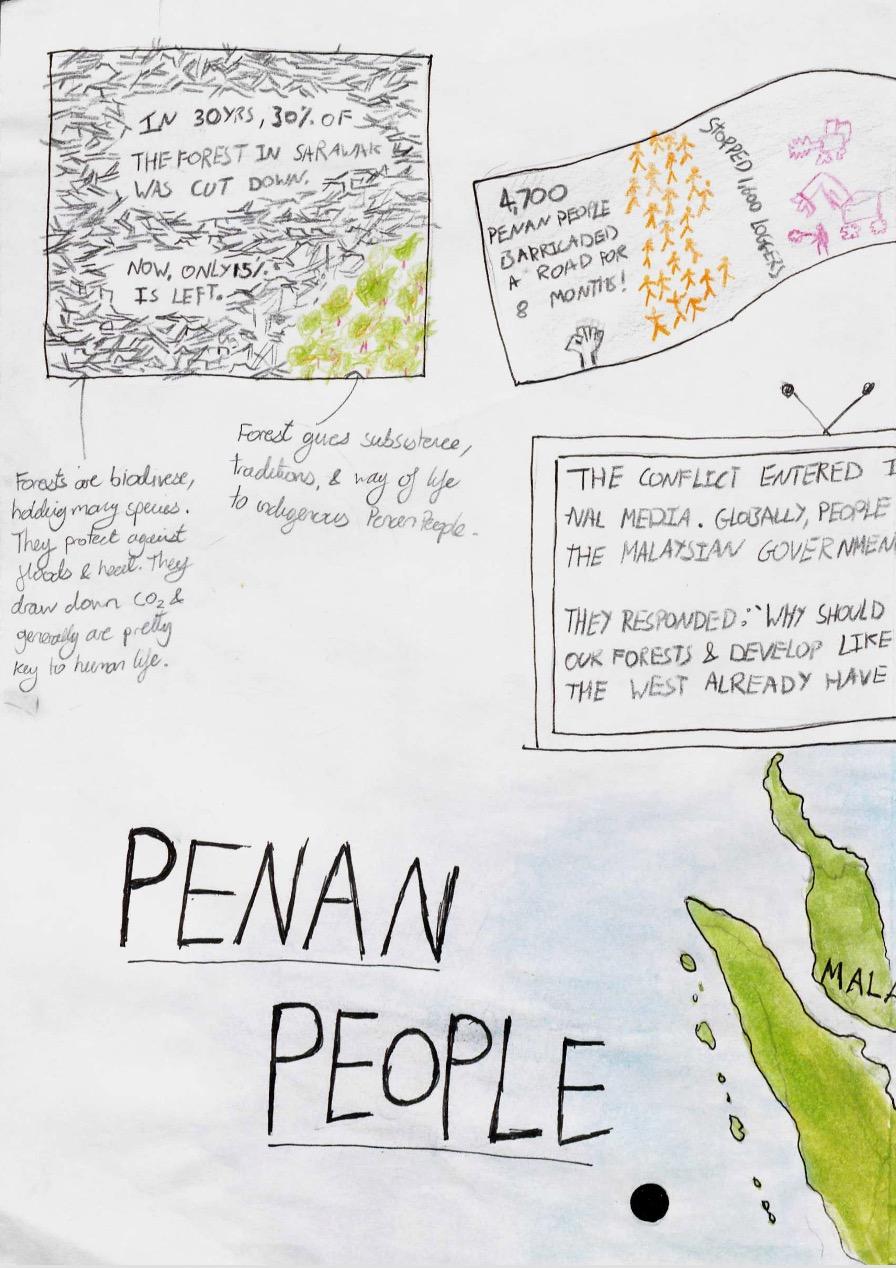 IN 30YRS, 30% OF
THE FOREST IN SARAWAK
WAS CUT DOWN.
NOW, ONLY 15%
IS LEFT.
4,700
PENAN PEOPLE
BARRICADED
A ROAD FOR
8 MONTHS!
STOPPED 1,600 LOGGERS
Forests are biodivese,
holding many species.
They protect against
floods & heat. They
draw down CO2 &
generally are pretty
key to human life.
Forest gives subsistence,
traditions, & way of life
to indigenous Penan People.
THE CONFLICT ENTERED I
NAL MEDIA. GLOBALLY, PEOPLE
THE MALAYSIAN GOVERNMEN
THEY RESPONDED: "WHY SHOULD
OUR FORESTS & DEVELOP LIKE
THE WEST ALREADY HAVE
PENAN
PEOPLE
MALA